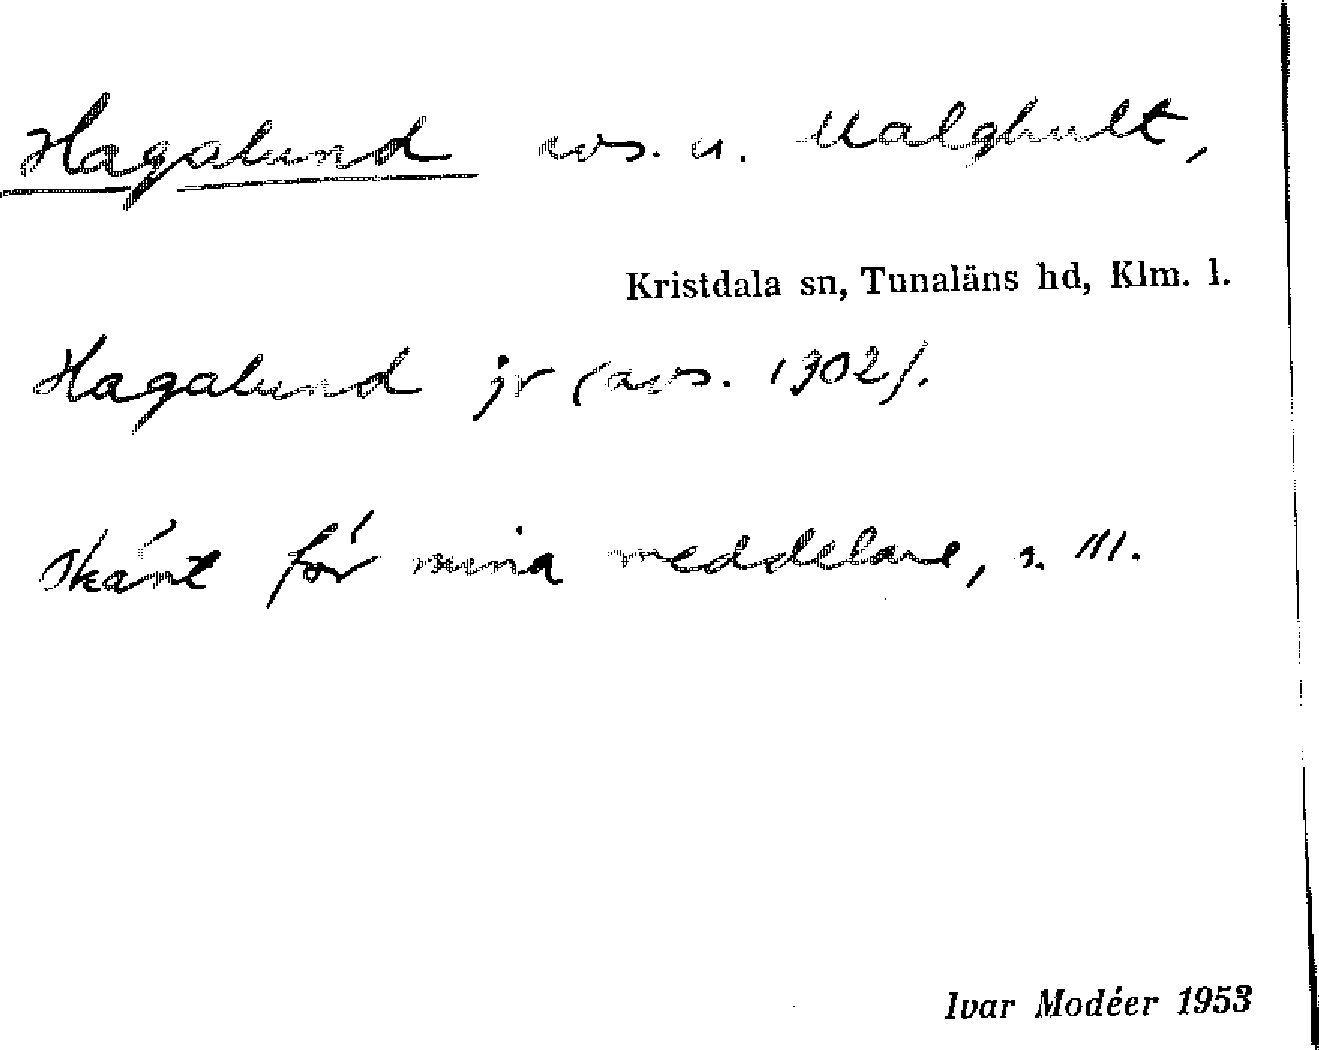 Hagalund avs. u. Malghult,
Kristdala sn, Tunaläns hd, Klm. l.
Hagalund jr (avs. 1902).
för mina meddelare,
Ivar Modéer 1953